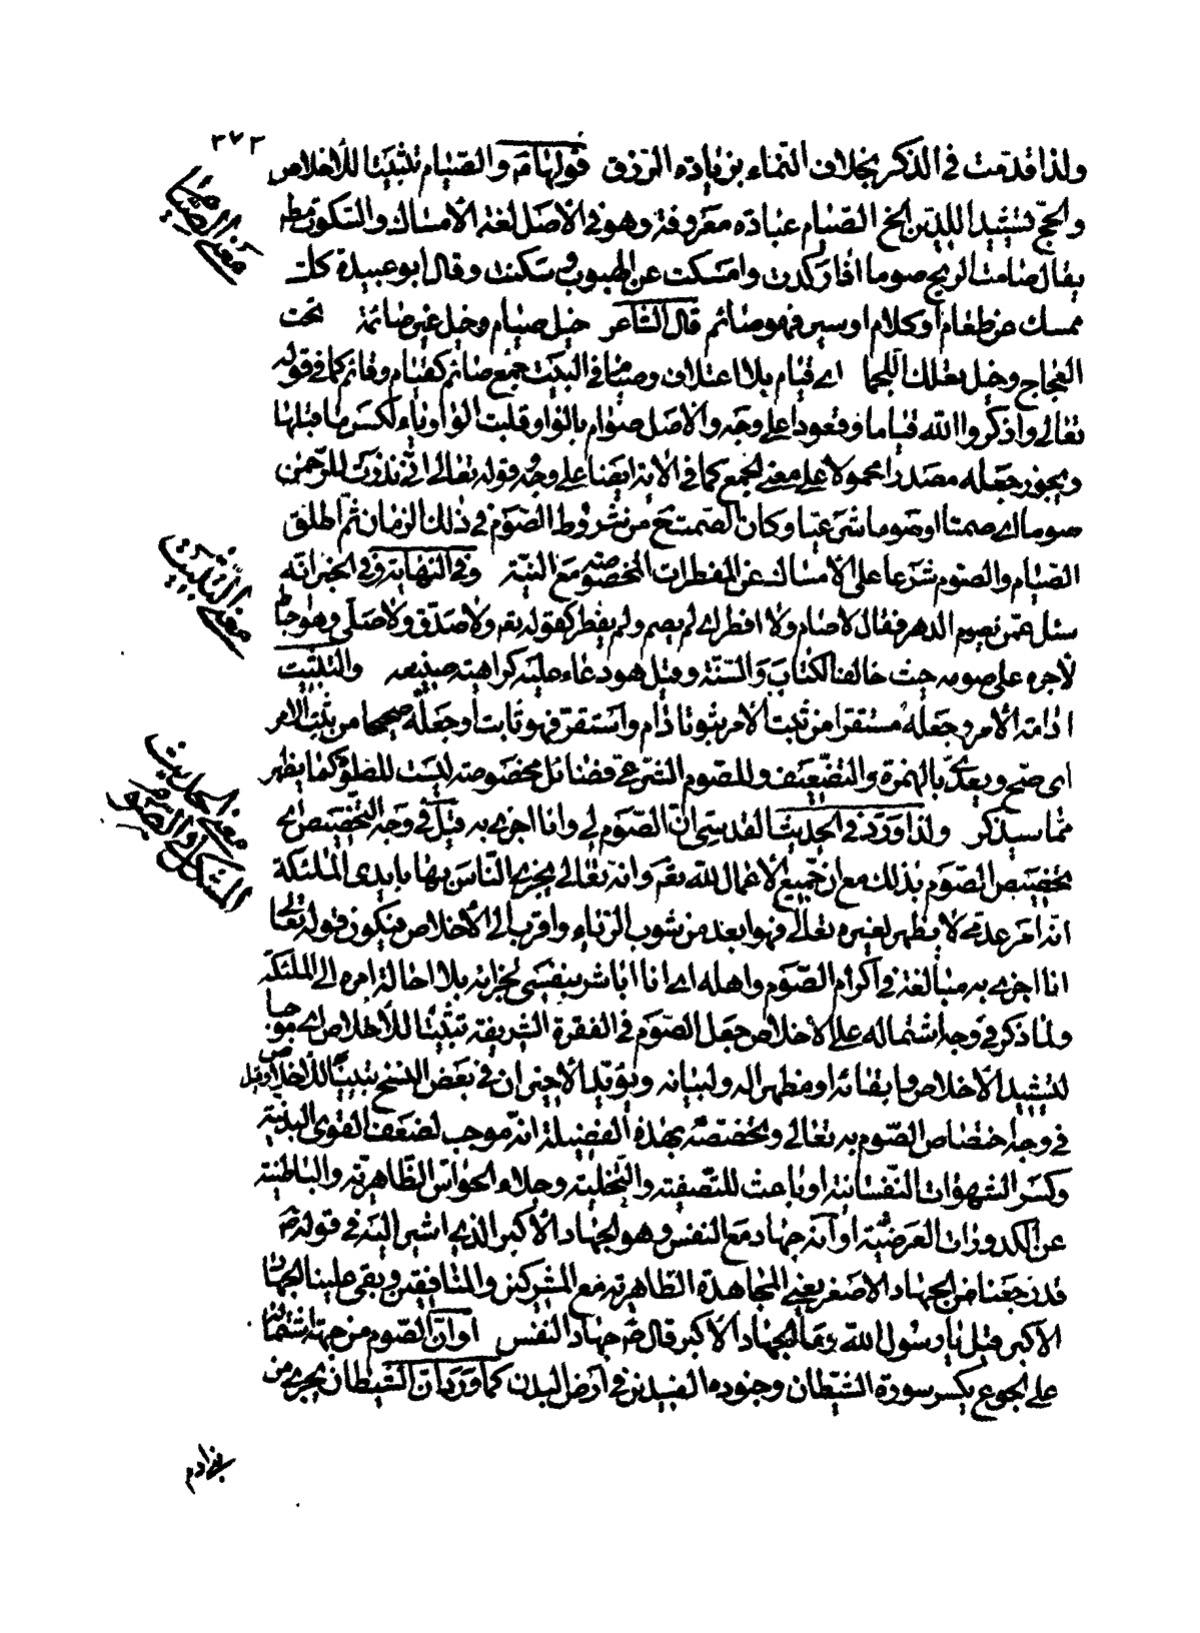 ٣٧٣
ولذا قدمت في الذكر بخلاف النماء بزيادة الرزق قولها ع والصيام تثبيتا للأخلاص
والحج تشييدا للدين الخ الصيام عبادة معروفة وهو في الأصل لغة الأمساك والسكوت مطلقا
يقال صامت الريح صوما اذا ركدت وامسكت عن الهبوب وسكنت وقال ابو عبيدة كل
ممسك عن طعام او كلام او سير فهو صائم قال الشاعر خيل صيام وخيل غير صائمة تحت
العجاج وخيل تعلك اللجما اي قيام بلا اعتلاف وصيام في البيت جمع صائم كقيام وقائم كما في قوله
تعالى واذكروا الله قياما وقعودا على وجه والاصل صوام بالواو قلبت الواو ياء لكسر ما قبلها
ويجوز جعله مصدرا محمولا على معنى الجمع كما في الآية ايضا على وجه وقوله تعالى اني نذرت للرحمن
صوما اي صمتا او صوما شرعيا وكان الصمت ح من شروط الصوم في ذلك الزمان ثم اطلق
الصيام والصوم شرعا على الأمساك عن المفطرات المخصوصة مع النية وفي النهاية وفي الخبر انه
سئل عمن يصوم الدهر فقال لا صام ولا افطر اي لم يصم ولم يفطر كقوله تع ولا صدق ولا صلى وهو
لاجره على صومه حيث خالف الكتاب والسنة وقيل هو دعاء عليه كراهية صنيعه والتثبيت
ادامة الأمر وجعله مستقرا من ثبت الأمر ثبوتا دام واستقر فهو ثابت او جعله صحيحا من ثبت الامر
اي صح ويعدى بالهمزة والتضعيف وللصوم الشرعي فضائل مخصوصة ليست للصلوة كما يظهر
مما سيذكر ولذا ورد في الحديث القدسي ان الصوم لي وانا اجزي به قيل في وجه التخصيص اي
تخصيص الصوم بذلك مع ان جميع الأعمال لله تع وانه تعالى يجزي الناس بها بايدي الملئكة
انه امر عدمي لا يظهر لغيره تعالى فهو ابعد من شوب الرياء واقرب الى الأخلاص فيكون قوله تعالى
انا اجزي به مبالغة في اكرام الصوم واهله اي انا اباشر بنفسي لجزائه بلا احالة امره الى الملئكة
ولما ذكر في وجه اشتماله على الأخلاص جعل الصوم في الفقرة الشريفة تثبيتا للأخلاص اي موجبا
لتشييد الأخلاص وابقائه او مظهرا له ولبيانه ويؤيد الأخير ان في بعض النسخ تبيينا للأخلاص وقيل
في وجه اختصاص الصوم به تعالى وتخصصه بهذه الفضيلة انه موجب لضعف القوى البدنية
وكسر الشهوات النفسانية او باعث للتصفية والتخلية وجلاء الحواس الظاهرية والباطنية
عن الكدورات العرضية او انه جهاد مع النفس وهو الجهاد الأكبر الذي اشير اليه في قوله ص
قد رجعنا من الجهاد الاصغر يعني المجاهدة الظاهرية مع المشركين والمنافقين وبقي علينا الجهاد
الاكبر قيل يا رسول الله وما الجهاد الأكبر قال ص جهاد النفس او ان الصوم من جهة اشتماله
على الجوع يكسر سورة الشيطان وجنوده المفسدين في ارض البدن كما ورد ان الشيطان يجري من
بني ادم
معنى الصيام
معنى التثبيت
معنى الحديث
المشكل والصوم